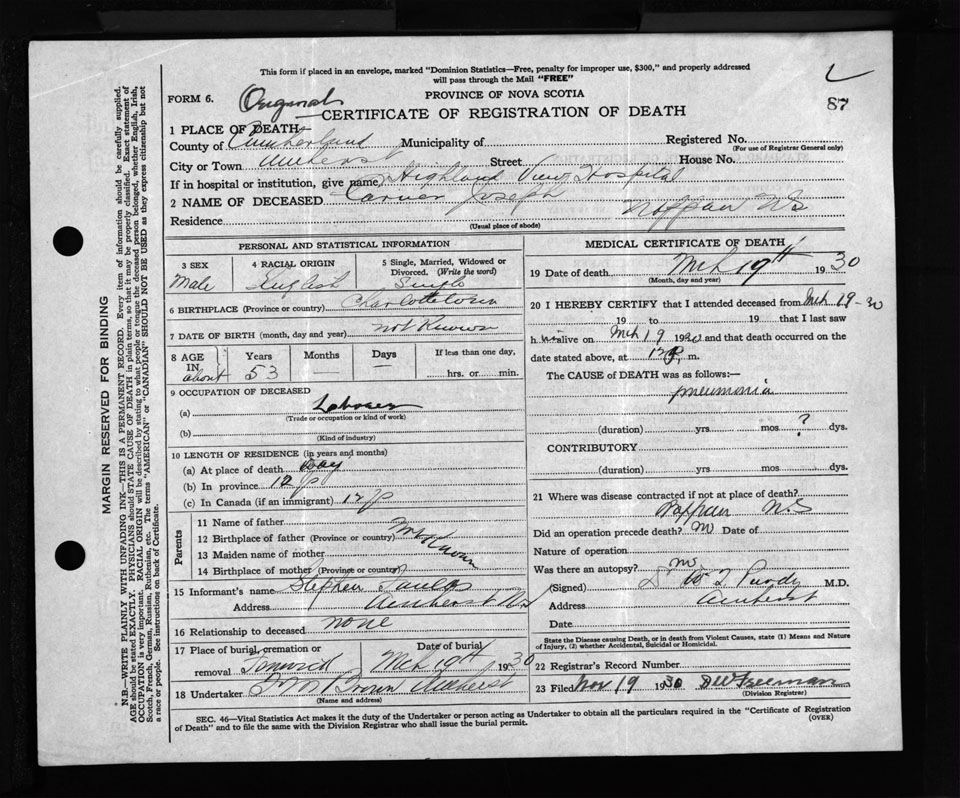 This form if placed in an envelope, marked "Dominion Statistics—Free, penalty for improper use, $300," and properly addressed
will pass through the Mail "FREE"
FORM 6. Original
PROVINCE OF NOVA SCOTIA
87
CERTIFICATE OF REGISTRATION OF DEATH
1 PLACE OF DEATH—
County of Cumberland Municipality of Registered No.
(For use of Registrar General only)
City or Town Amherst Street House No.
If in hospital or institution, give name Highland View Hospital
2 NAME OF DECEASED Carver Joseph
Residence Nappan Ns
(Usual place of abode)
PERSONAL AND STATISTICAL INFORMATION
3 SEX Male
4 RACIAL ORIGIN English
5 Single, Married, Widowed or Divorced. (Write the word) Single
6 BIRTHPLACE (Province or country) Charlottetown
7 DATE OF BIRTH (month, day and year) not Known
8 AGE IN about Years 53 Months — Days — If less than one day, hrs. or min.
9 OCCUPATION OF DECEASED
(a) Laborer
(Trade or occupation or kind of work)
(b)
(Kind of industry)
10 LENGTH OF RESIDENCE (in years and months)
(a) At place of death Day
(b) In province 12 y
(c) In Canada (if an immigrant) 12 y
Parents
11 Name of father
12 Birthplace of father (Province or country) not Known
13 Maiden name of mother
14 Birthplace of mother (Province or country)
15 Informant's name Stephen
Address Amherst Ns
16 Relationship to deceased none
17 Place of burial, cremation or removal Fenwick Date of burial Mch 19th 1930
18 Undertaker Brown Amherst
(Name and address)
MEDICAL CERTIFICATE OF DEATH
19 Date of death Mch 19th 1930
(Month, day and year)
20 I HEREBY CERTIFY that I attended deceased from Mch 19-30
19 to 19 that I last saw
h im alive on Mch 19 1930 and that death occurred on the
date stated above, at 12 P. m.
The CAUSE of DEATH was as follows:—
pneumonia
(duration) yrs mos ? dys.
CONTRIBUTORY
(duration) yrs. mos. dys.
21 Where was disease contracted if not at place of death?
Nappan N.S
Did an operation precede death? no Date of
Nature of operation
Was there an autopsy? no
(Signed) Purdy M.D.
Address Amherst
Date
State the Disease causing Death, or in death from Violent Causes, state (1) Means and Nature of Injury, (2) whether Accidental, Suicidal or Homicidal.
22 Registrar's Record Number
23 Filed Nov 19 1930 Freeman
(Division Registrar)
SEC. 46—Vital Statistics Act makes it the duty of the Undertaker or person acting as Undertaker to obtain all the particulars required in the "Certificate of Registration
of Death" and to file the same with the Division Registrar who shall issue the burial permit.
(OVER)
MARGIN RESERVED FOR BINDING
N.B.—WRITE PLAINLY WITH UNFADING INK—THIS IS A PERMANENT RECORD. Every item of information should be carefully supplied.
AGE should be stated EXACTLY. PHYSICIANS should STATE CAUSE OF DEATH in plain terms, so that it may be properly classified. Exact statement of
OCCUPATION is very important. RACIAL ORIGIN will be described by stating to what people or tongue the deceased person belonged, whether English, Irish,
Scotch, French, German, Russian, Ruthenian, etc. The terms "AMERICAN" or "CANADIAN" SHOULD NOT BE USED as they express citizenship but not
a race or people. See instructions on back of Certificate.